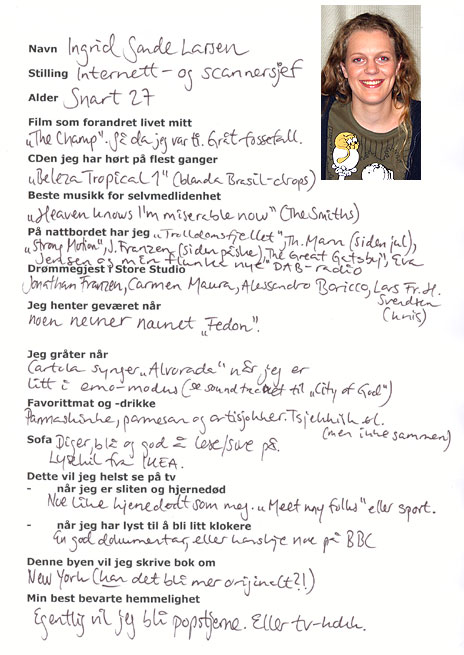 Navn Ingrid Sande Larsen
Stilling Internett- og scannersjef
Alder Snart 27
Film som forandret livet mitt
"The Champ". Så da jeg var ti. Gråt fossefall.
CDen jeg har hørt på flest ganger
"Beleza Tropical 1" (blanda Brasil-drops)
Beste musikk for selvmedlidenhet
"Heaven knows I'm miserable now" (The Smiths)
På nattbordet har jeg "Trolldomsfjellet", Th. Mann (siden jul),
"Strong Motion", J. Franzen (siden påske), "The Great Gatsby", Eva
Jensen og min flunke nye DAB-radio
Drømmegjest i Store Studio
Jonathan Franzen, Carmen Maura, Alessandro Baricco, Lars Fr. H.
Svendsen
Jeg henter geværet når
noen nevner navnet "Fedon".
Jeg gråter når
Cartola synger "Alvorada" når jeg er
litt i emo-modus (se soundtracket til "City of God")
Favorittmat og -drikke
Parmaskinke, parmesan og artisjokker. Tsjekkisk øl.
(men ikke sammen)
Sofa Diger, blå og god å lese/sove på.
fra IKEA.
Dette vil jeg helst se på tv
- når jeg er sliten og hjernedød
Noe like hjernedødt som meg. "Meet my folks" eller sport.
- når jeg har lyst til å bli litt klokere
En god dokumentar, eller kanskje noe på BBC
Denne byen vil jeg skrive bok om
New York (kan det bli mer originalt?!)
Min best bevarte hemmelighet
Egentlig vil jeg bli popstjerne. Eller tv-kokk.